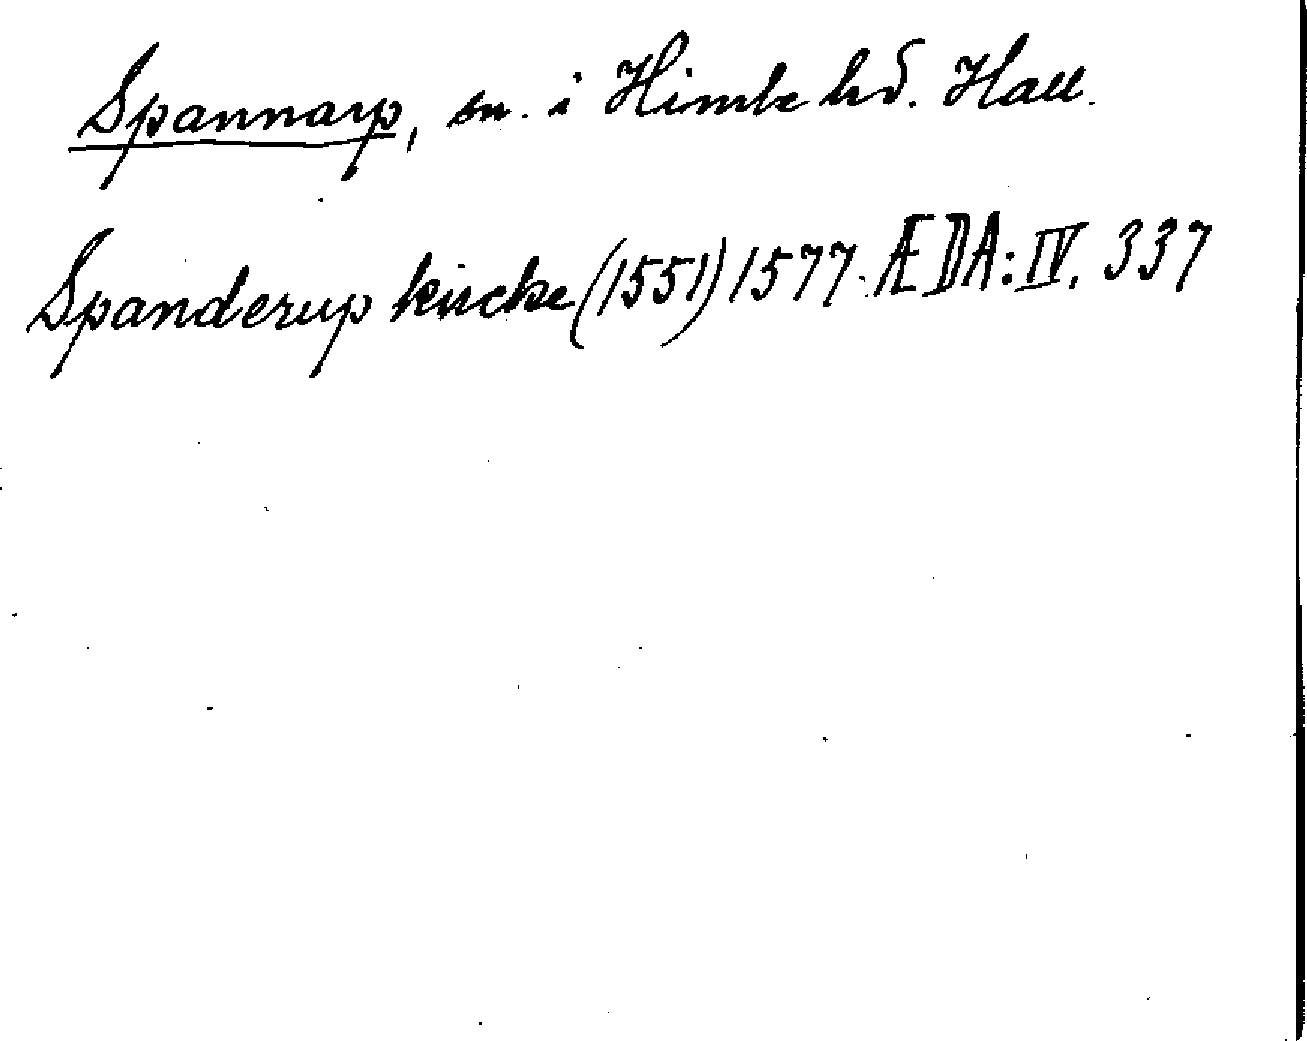 Spannarp, sn. i Himle hd. Hall.
Spanderup kircke (1551) 1577. ÆDA: IV. 337